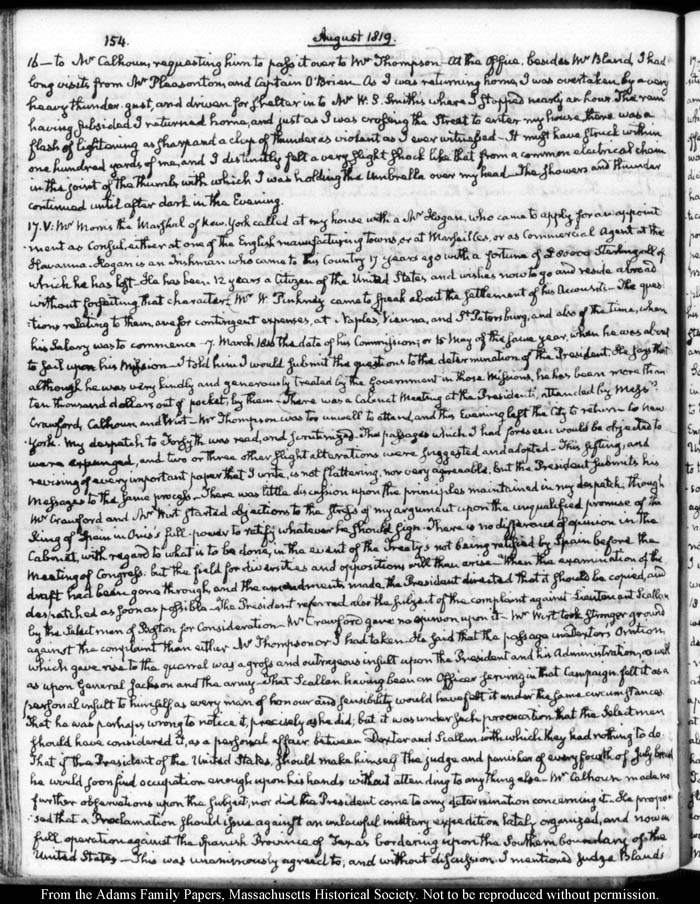 154.
August 1819.
16 — to Mr Calhoun, requesting him to pass it over to Mr Thompson — At the Office, besides Mr Bland, I had
long visits from Mr Pleasonton, and Captain O'Brien — As I was returning home, I was overtaken by a very
heavy thunder-gust, and driven for shelter in to Mr W. S. Smith's where I stopped nearly an hour. The rain
having subsided I returned home, and just as I was crossing the Street to enter my house, there was a
flash of lightening as sharp and a clap of thunder as violent as I ever witnessed — It must have struck within
one hundred yards of me, and I distinctly felt a very slight shock like that from a common electrical chain
in the joint of the thumb with which I was holding the Umbrella over my head — The showers and thunder
continued until after dark in the Evening.
17. V: Mr Morris the Marshal of New-York called at my house with a Mr Hogan, who came to apply for an appoint
-ment as Consul, either at one of the English manufacturing towns, or at Marseilles, or as Commercial Agent at the
Havanna. Hogan is an Irishman who came to this Country 17 years ago with a fortune of Sterling all of
which he has lost — He has been 12 years a Citizen of the United States, and wishes now to go and reside abroad
without forfeiting that character. Mr W. Pinkney came to speak about the settlement of his Accounts — The ques
-tions relating to them, are for contingent expenses, at Naples, Vienna, and St. Petersburg, and also of the time, when
his Salary was to commence — 7. March 1816 the date of his Commission; or 15 May of the same year, when he was about
to sail upon his Mission — I told him I would submit the questions to the determination of the President. He says that
although he was very kindly and generously treated by the Government in those Missions, he has been more than
ten thousand dollars out of pocket, by them — There was a Cabinet Meeting at the President's, attended by Messrs
Crawford, Calhoun and Wirt — Mr Thompson was too unwell to attend, and this Evening left the City to return to New
-York. My despatch to Forsyth was read, and scrutinized — The passages which I had foreseen would be objected to
were expunged, and two or three other slight alterations were suggested and adopted — This sifting, and
revising of every important paper that I write, is not flattering, nor very agreeable, but the President submits his
Messages to the same process — There was little discussion upon the principles maintained in my despatch, though
Mr Crawford and Mr Wirt started objections to the stress of my argument upon the unqualified promise of the
King of Spain in Onis's full-power to ratify whatever he should sign — There is no difference of opinion in the
Cabinet, with regard to what is to be done, in the event of the Treaty's not being ratified by Spain before the
Meeting of Congress. but the field for diversities and oppositions will then arise — When the examination of the
draft had been gone through, and the amendments made, the President directed that it should be copied, and
despatched as soon as possible — The President referred also the subject of the complaint against Lieutenant Scallan
by the Selectmen of Boston for Consideration — Mr Crawford gave no opinion upon it — Mr Wirt took stronger ground
against the complaint than either Mr Thompson or I had taken — He said that the passage in Dexter's Oration,
which gave rise to the quarrel was a gross and outrageous insult upon the President and his Administration, as well
as upon General Jackson and the army — That Scallan having been an Officer serving in that Campaign felt it as a
personal insult to himself as every man of honour and sensibility would have felt it under the same circumstances.
That he was perhaps wrong to notice it, precisely as he did, but it was under such provocation that the Selectmen
should have considered it, as a personal affair between Dexter and Scallan with which they had nothing to do.
That if the President of the United States, should make himself the judge and punisher of every fourth of July
he would soon find occupation enough upon his hands without attending to any thing else — Mr Calhoun made no
further observations upon the subject, nor did the President come to any determination concerning it — He propo
-sed that a Proclamation should issue against an unlawful military expedition lately organized, and now in
full operation against the Spanish Province of Texas bordering upon the Southern boundary of the
United States — This was unanimously agreed to, and without discussion. I mentioned Judge Bland's
From the Adams Family Papers, Massachusetts Historical Society. Not to be reproduced without permission.